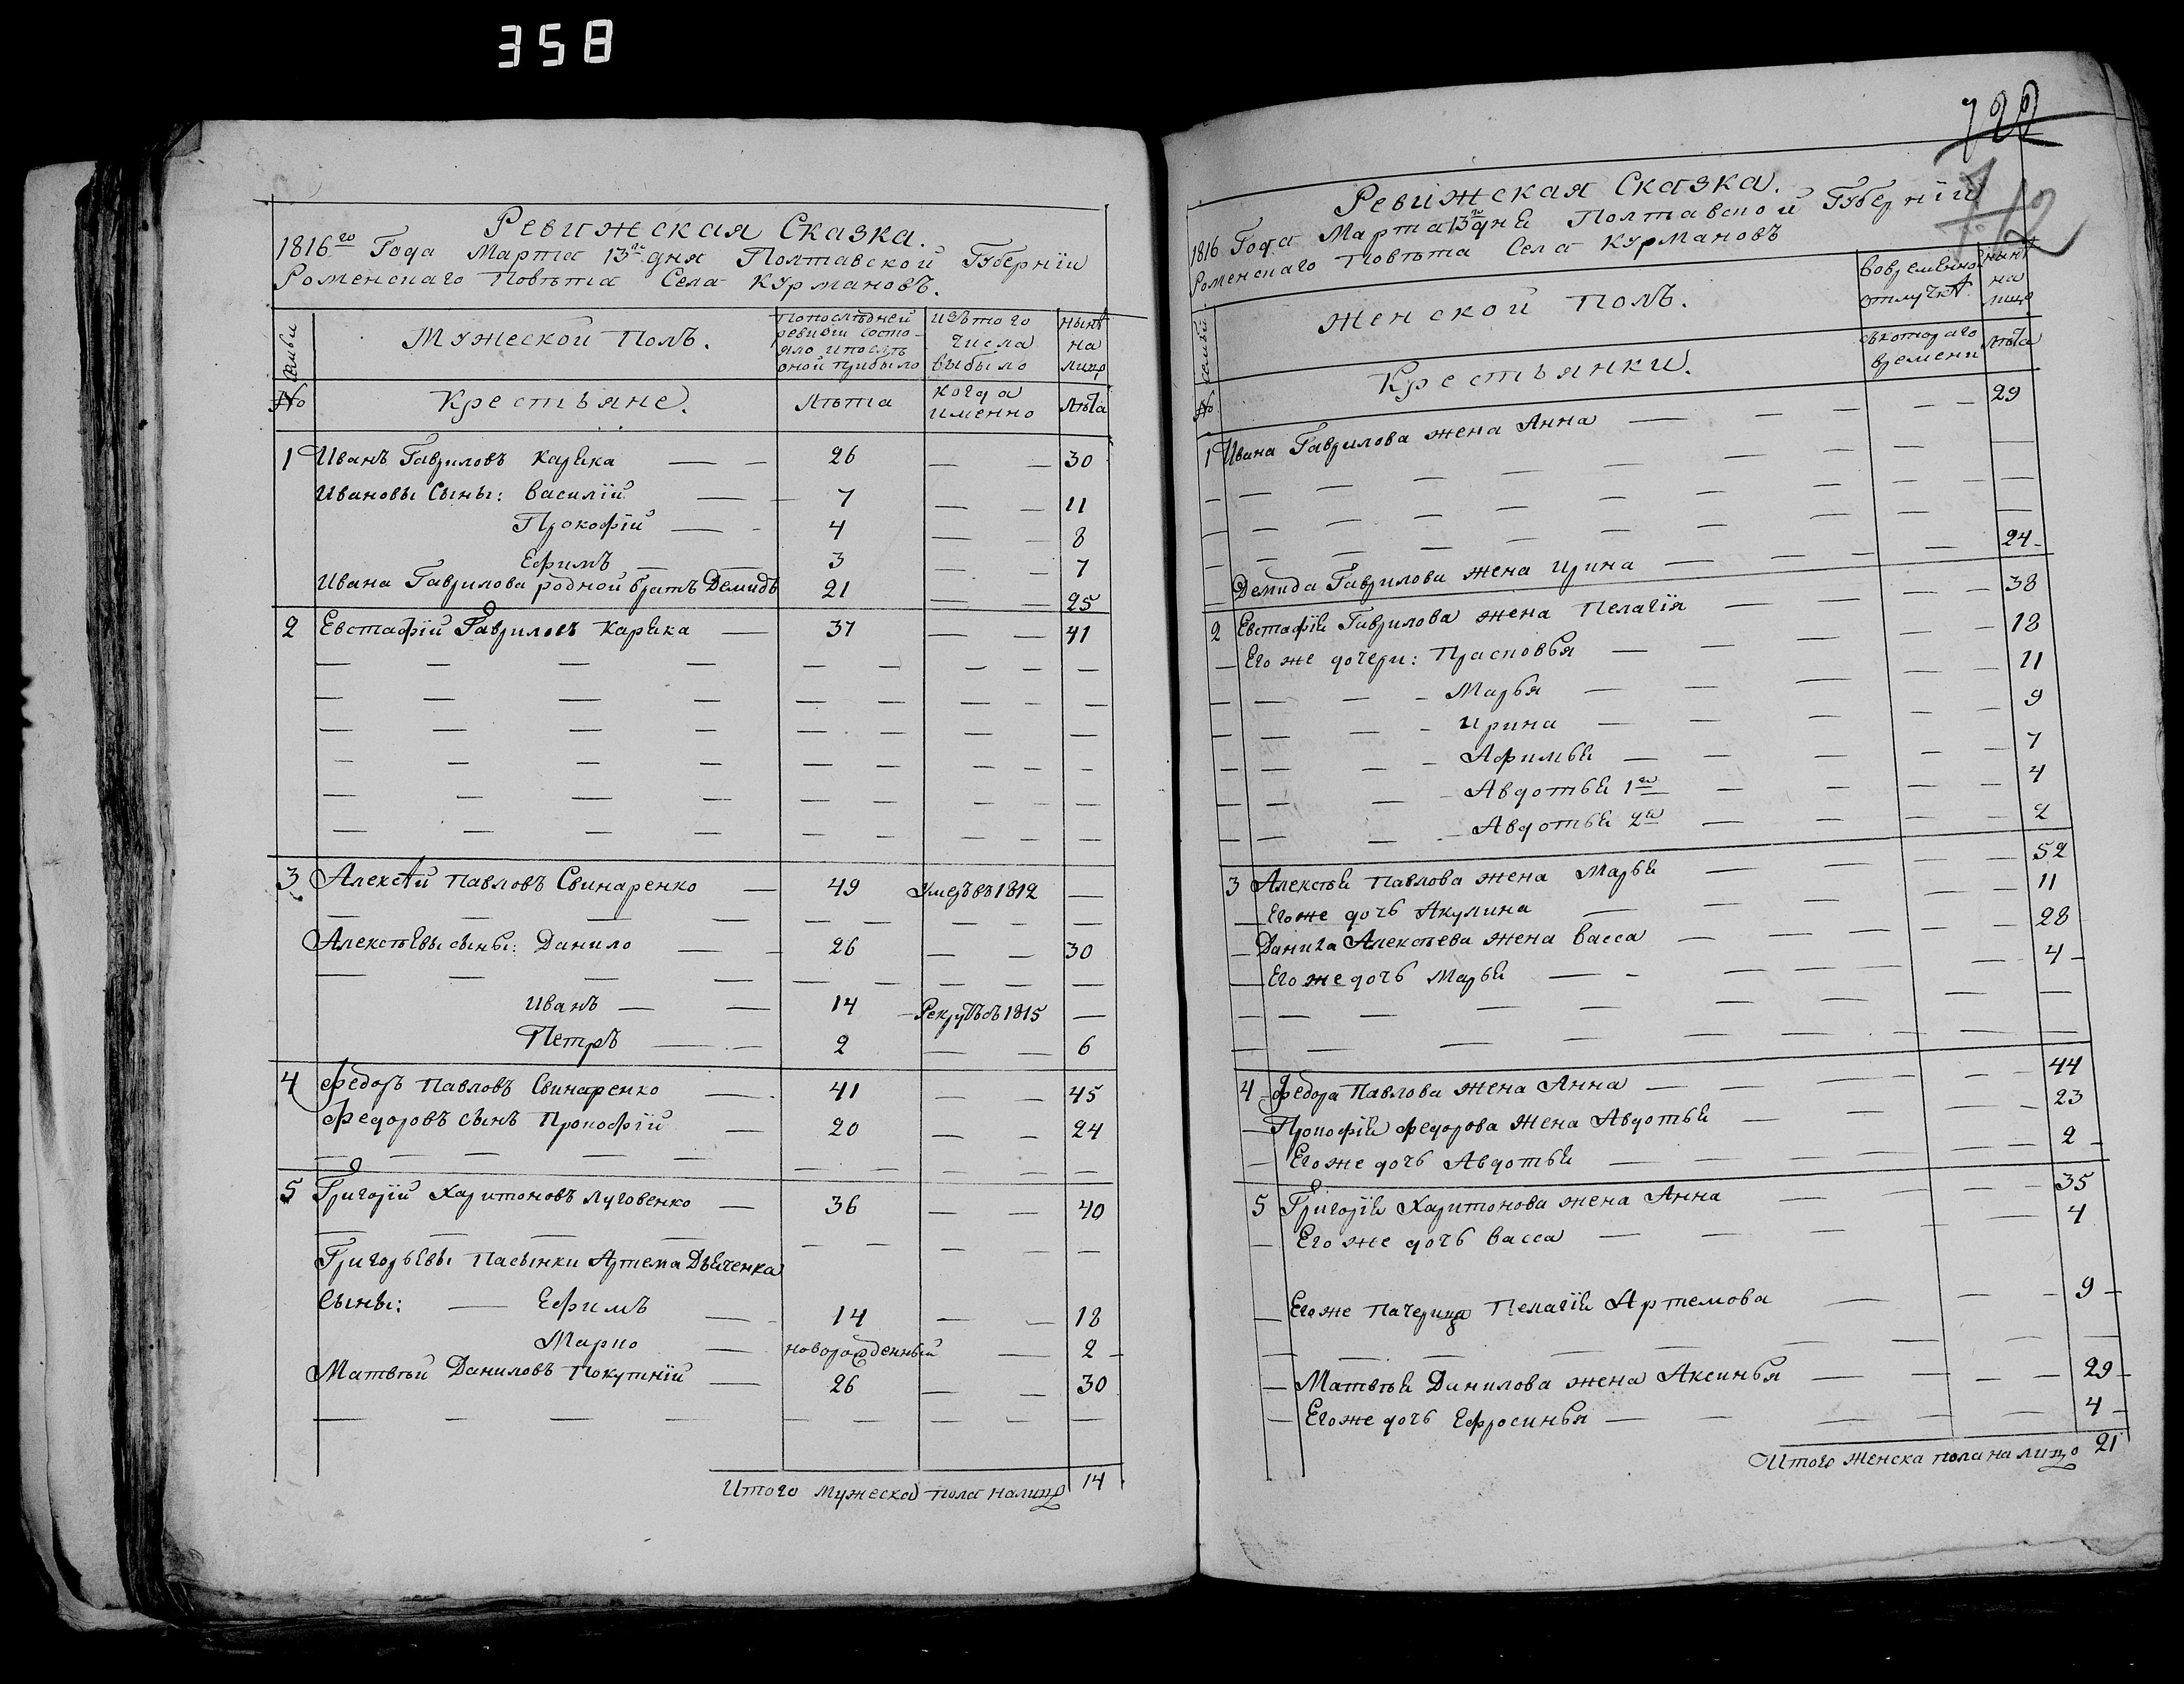 358
Ревижская Сказка.
1816го Года Марта 13го дня Полтавской Губернїи
Роменскаго Повѣта Села Курмановъ.
Мужеской Полъ.
По послѣдней
ревизіи состо-
яло и послѣ
оной прибыло
Изъ того
числа
выбыло
нынѣ
на
лицо
№
Крестьяне.
Лѣта
когда
именно
лѣта
1 Иванъ Гавриловъ Карѣка — — 26 — — 30
Ивановы Сыны: Василїй — — 7 — — 11
Прокофїй — - 4 — — 8
Ефимъ — — 3 — — 7
Ивана Гаврилова родной братъ Демидъ 21 — — 25
2 Евстафїй Гавриловъ Карѣка — 37 — — 41
3 Алексѣй Павловъ Свинаренко — 49 Умеръ въ 1812 —
Алексѣевы сыны: Данило — - 26 — — 30
Иванъ — — 14 Рекрутъ съ 1815 —
Петръ — — 2 — — 6
4 Федоръ Павловъ Свинаренко — 41 — — 45
Федоровъ сынъ Прокофїй — 20 — — 24
5 Григорїй Харитоновъ Луговенко — 36 — — 40
Григорьевы пасынки Артема Дьяченка
Сыны: — Ефимъ — 14 — — 18
Марко — новорожденный — 2 —
Матвѣй Даниловъ Покутнїй — 26 — — 30
Итого мужеска пола налицо 14
722
712
Ревижская Сказка.
1816 Года Марта 13го дня Полтавской Губернїи
Роменскаго Повѣта Села Курмановъ
Женской Полъ.
Во временной
отлучкѣ
нынѣ
на
лицо
№
Крестьянки.
съ котораго
времени
лѣта
1 Ивана Гаврилова жена Анна — — — — 29
Демида Гаврилова жена Ирина — — — 24
2 Евстафїя Гаврилова жена Пелагїя — — — 38
Его же дочери: Прасковья — — — 18
Марья — — — 11
Ирина — — — 9
Афимья — — — 7
Авдотья 1я — — — 4
Авдотья 2я — — — 2
3 Алексѣя Павлова жена Марья — — — 52
Его же дочь Акулина — — — 11
Данила Алексѣева жена Васса — — — 28
Его же дочь Марья — - — 4
4 Федора Павлова жена Анна — — — 44
Прокофїя Федорова жена Авдотья — — 23
Его же дочь Авдотья — — — 2
5 Григорїя Харитонова жена Анна — — — 35
Его же дочь Васса — — — 4
Его же пачерица Пелагїя Артемова — — 9
Матвѣя Данилова жена Аксинья — — — 29
Его же дочь Ефросинья — — — 4
Итого женска пола на лицо 21